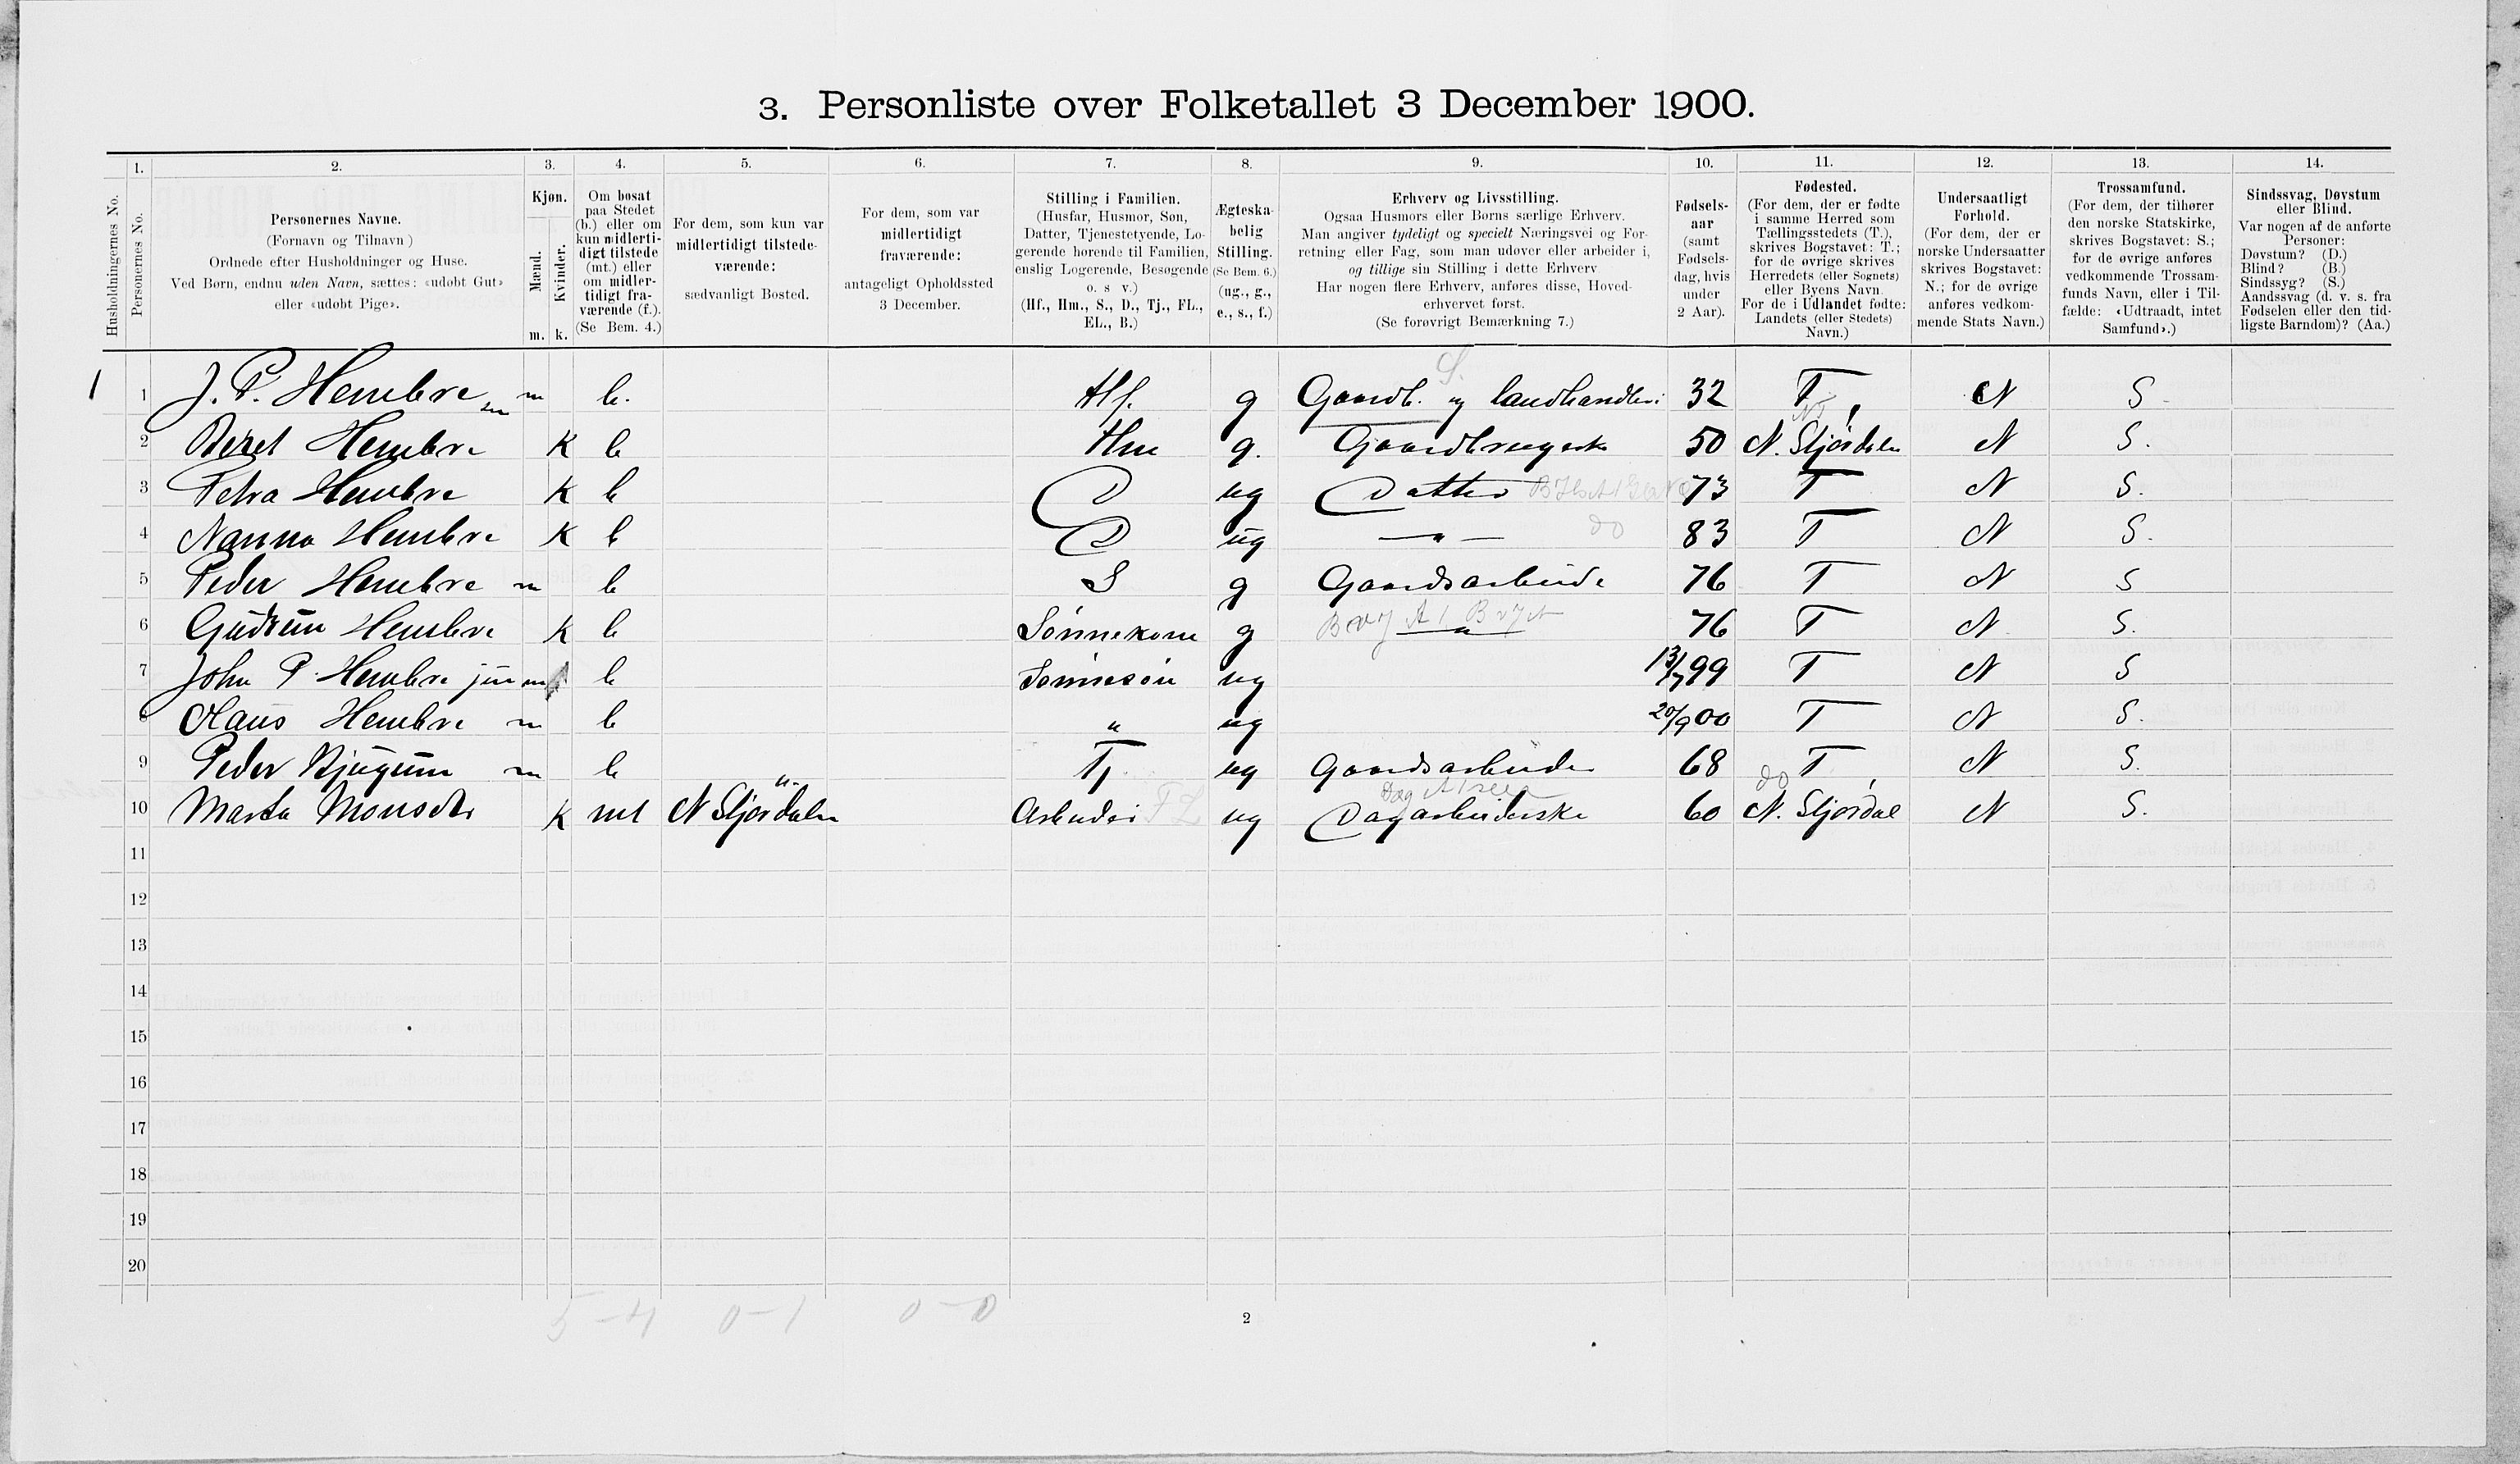 3. Personliste over Folketallet 3 December 1900.
Husholdningernes No.
1.
Personernes No.
2.
Personernes Navne.
(Fornavn og Tilnavn)
Ordnede efter Husholdninger og Huse.
Ved Børn, endnu uden Navn, sættes: «udøbt Gut»
eller «udøbt Pige».
3.
Kjøn.
Mænd.
Kvinder.
m. k.
4.
Om bosat
paa Stedet
(b.) eller om
kun midlerti-
digt tilstede
(mt.) eller
om midler-
tidigt fra-
værende (f.).
(Se Bem. 4.)
5.
For dem, som kun var
midlertidigt tilstede-
værende:
sædvanligt Bosted.
6.
For dem, som var
midlertidigt
fraværende:
antageligt Opholdssted
3 December.
7.
Stilling i Familien.
(Husfar, Husmor, Søn,
Datter, Tjenestetyende, Lo-
gerende hørende til Familien,
enslig Logerende, Besøgende
o. s v.)
(Hf., Hm., S., D., Tj., FL.,
EL., B.)
8.
Ægteska-
belig
Stilling.
(Se Bem. 6.)
(ug., g.,
e., s., f.)
9.
Erhverv og Livsstilling.
Ogsaa Husmors eller Børns særlige Erhverv.
Man angiver tydeligt og specielt Næringsvei og For-
retning eller Fag, som man udøver eller arbeider i,
og tillige sin Stilling i dette Erhverv
Har nogen flere Erhverv, anføres disse, Hoved-
erhvervet først.
(Se forøvrigt Bemærkning 7.)
10.
Fødsels-
aar
(samt
Fødsels-
dag, hvis
under
2 Aar).
11.
Fødested.
(For dem, der er fødte
i samme Herred som
Tællingsstedets (T.),
skrives Bogstavet: T.;
for de øvrige skrives
Herredets (eller Sognets)
eller Byens Navn.
For de i Udlandet fødte:
Landets (eller Stedets)
Navn.)
12.
Undersaatligt
Forhold.
(For dem, der er
norske Undersaatter
skrives Bogstavet:
N.; for de øvrige
anføres vedkom-
mende Stats Navn.)
13.
Trossamfund.
(For dem, der tilhører
den norske Statskirke,
skrives Bogstavet: S.;
for de øvrige anføres
vedkommende Trossam-
funds Navn, eller i Til-
fælde: «Udtraadt, intet
Samfund».)
14.
Sindssvag, Døvstum
eller Blind.
Var nogen af de anførte
Personer:
Døvstum? (D.)
Blind? (B.)
Sindssyg? (S.)
Aandssvag (d. v. s. fra
Fødselen eller den tid-
ligste Barndom)? (Aa.)
1 1 J. P. Hembre sen m b. Hf. g Gaardb. og landhandleri 32 T. N S
2 Beret Hembre K b Hm g. Gaardbrugerske 50 N. Stjørdalen N S.
3 Petra Hembre K b D ug Datter 73 T N S.
4 Nanna Hembre K b D ug — " — do 83 T N S.
5 Peder Hembre m b S g Gaardsarbeide 76 T N S
6 Gudrun Hembre K b Sønnekone g — " — 76 T N S.
7 John P. Hembre jun m b Sønnesøn ug 13/7 99 T N S
8 Olaus Hembre m b " ug 20/9 00 T N S.
9 Peder Bjugum m b Tj ug Gaardsarbeide 68 T N S.
10 Marta Monsdtr K mt N Stjørdalen Arbeider FL ug Dagarbeiderske 60 do N. Stjørdal N S.
11
12
13
14
15
16
17
18
19
20
5 - 4 0 - 1 0 - 0
2